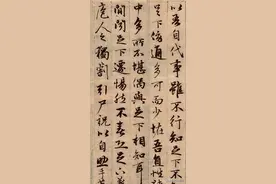 以吾自代事雖不行知足下不
足下傍通多可而少怪吾直性狹
中多所不堪偶與足下相知耳
間聞足下遷惕然不喜恐足下
庖人之獨割引尸祝以自助手